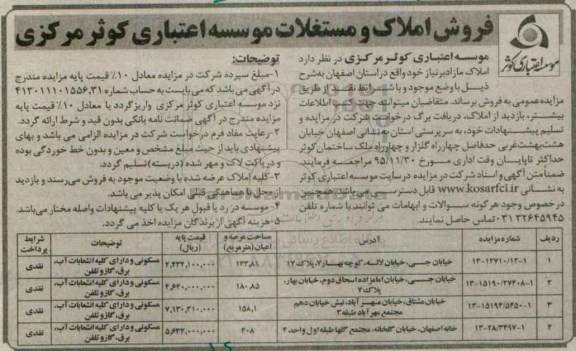 فروش املاک و مستغلات موسسه اعتباری کوثر مرکزی
موسسه اعتباری کوثر
موسسه اعتباری کوثر مرکزی در نظر دارد
املاک مازاد بر نیاز خود واقع در استان اصفهان به شرح
ذیل با وضع موجود و با شرایط نقد از طریق
مزایده عمومی به فروش برساند. متقاضیان میتوانند جهت کسب اطلاعات
بیشتر، بازدید از املاک، دریافت برگ درخواست شرکت در مزایده و
تسلیم پیشنهادات خود، به سرپرستی استان به نشانی اصفهان خیابان
هشت بهشت غربی حدفاصل چهارراه گلزار و چهارراه ملک ساختمان کوثر
حداکثر تا پایان وقت اداری مورخ ۹۵/۱۱/۳۰ مراجعه فرمایند.
ضمناً متن آگهی و اسناد شرکت در مزایده در سایت موسسه اعتباری کوثر
به نشانی www.kosarfci.ir قابل دسترسی می باشد. همچنین
در خصوص وجود هر گونه سوالات و ابهامات می توانند با شماره تلفن
۰۳۱۳۲۶۴۵۹۴۵ تماس حاصل نمایند.
توضیحات:
۱-مبلغ سپرده شرکت در مزایده معادل ۱۰٪ قیمت پایه مزایده مندرج
در آگهی می باشد که می بایست به حساب شماره ۴۱۳۰۱۱۱۰۱۵۵۶.۳۱
نزد موسسه اعتباری کوثر مرکزی واریز گردد یا معادل ۱۰٪ قیمت پایه
مزایده مندرج در آگهی ضمانت نامه بانکی بدون قید و شرط ارائه گردد.
۲-رعایت مفاد فرم درخواست شرکت در مزایده الزامی می باشد و بهای
پیشنهادی باید از حیث مبلغ مشخص و معین و بدون خط خوردگی بوده
و در پاکت لاک و مهر شده (دربسته) تسلیم گردد.
۳-کلیه املاک عرضه شده با وضعیت موجود به فروش می رسند و بازدید
از محل با هماهنگی قبلی امکان پذیر می باشد.
۴-موسسه در رد یا قبول هر یک یا کلیه پیشنهادات واصله مختار می باشد.
۵-هزینه آگهی از برندگان مزایده اخذ می گردد.
ردیف شماره مزایده آدرس مساحت عرصه و اعیان (مترمربع) قیمت پایه (ریال) توضیحات شرایط پرداخت
۱ ۱۳-۱۲۷۱۰/۱۲-۱ خیابان جی، خیابان لاله، کوچه بهار ۷، پلاک ۱۲ ۱۳۳.۸۱ مسکونی و دارای کلیه انشعابات آب، برق، گاز و تلفن نقدی
۲ خیابان جی، خیابان امامزاده اسحاق دوم، خیابان بهار، ۱۸۰.۸۵ مسکونی و دارای کلیه انشعابات آب، برق، گاز و تلفن نقدی
۳ خیابان مشتاق، خیابان مهرآباد، نبش خیابان دهم مجتمع مهرآباد طبقه ۳ ۱۵۸.۱ مسکونی و دارای کلیه انشعابات آب، برق، گاز و تلفن نقدی
۴ ۱۳-۲۸/۳۴۹۷-۱ خانه اصفهان، خیابان گلخانه، مجتمع گلها طبقه اول واحد ۲ ۲۰۸ مسکونی و دارای کلیه انشعابات آب، برق، گاز و تلفن نقدی